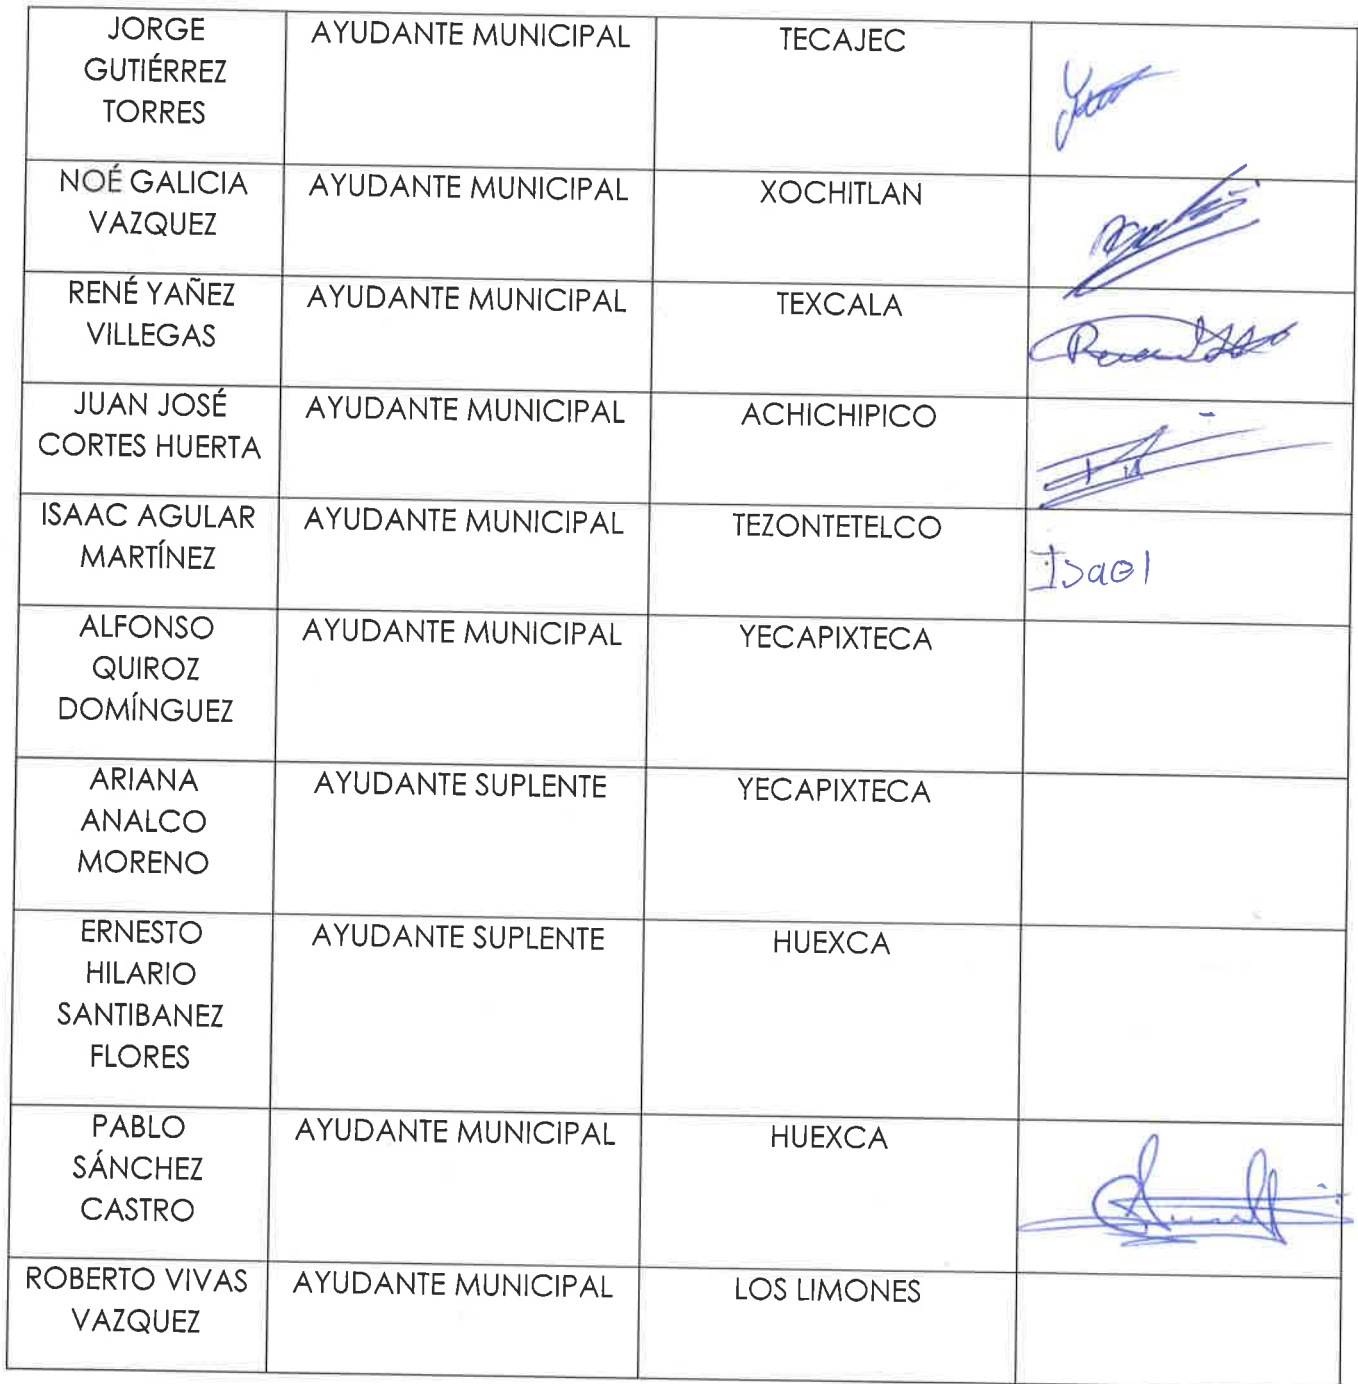 JORGE
GUTIÉRREZ
TORRES
AYUDANTE MUNICIPAL
TECAJEC
NOÉ GALICIA
VAZQUEZ
AYUDANTE MUNICIPAL
XOCHITLAN
RENÉ YAÑEZ
VILLEGAS
AYUDANTE MUNICIPAL
TEXCALA
JUAN JOSÉ
CORTES HUERTA
AYUDANTE MUNICIPAL
ACHICHIPICO
ISAAC AGULAR
MARTÍNEZ
AYUDANTE MUNICIPAL
TEZONTETELCO
ALFONSO
QUIROZ
DOMÍNGUEZ
AYUDANTE MUNICIPAL
YECAPIXTECA
ARIANA
ANALCO
MORENO
AYUDANTE SUPLENTE
YECAPIXTECA
ERNESTO
HILARIO
SANTIBANEZ
FLORES
AYUDANTE SUPLENTE
HUEXCA
PABLO
SÁNCHEZ
CASTRO
AYUDANTE MUNICIPAL
HUEXCA
ROBERTO VIVAS
VAZQUEZ
AYUDANTE MUNICIPAL
LOS LIMONES